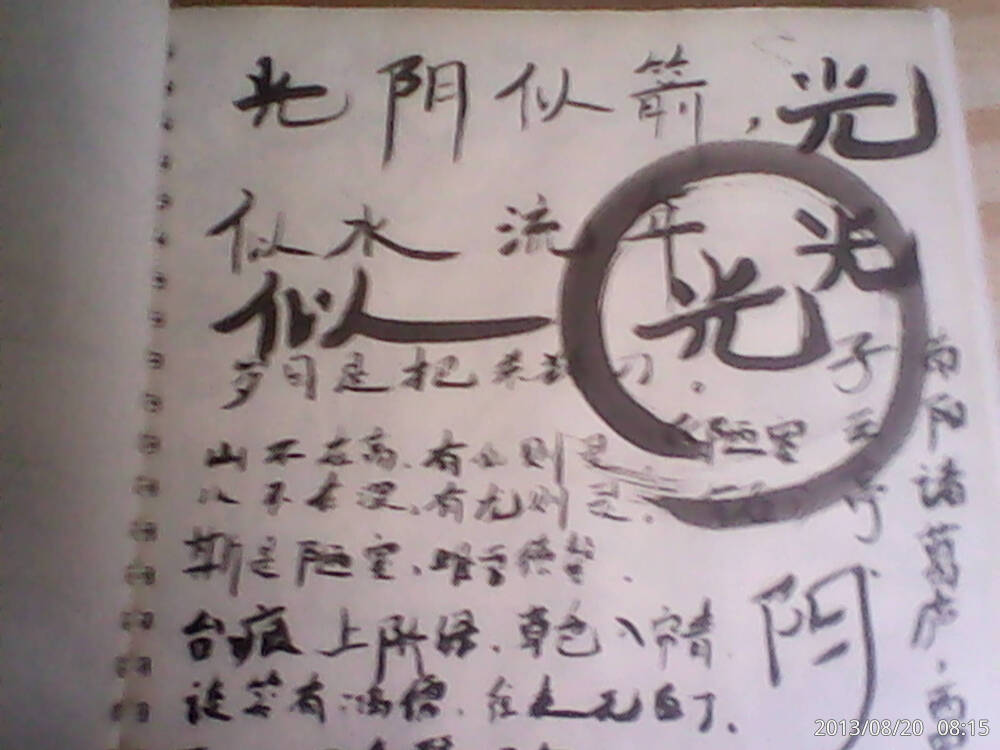 光阴似箭,光
似水流年 光
似 光
岁月是把杀猪刀。
山不在高,有仙则名
水不在深,有龙则灵。
斯是陋室,唯吾德馨。
台痕上阶绿,草色入帘青
谈笑有鸿儒,往来无白丁。
陋室
阴
子云
南阳诸葛庐,西
2013/08/20 08:15